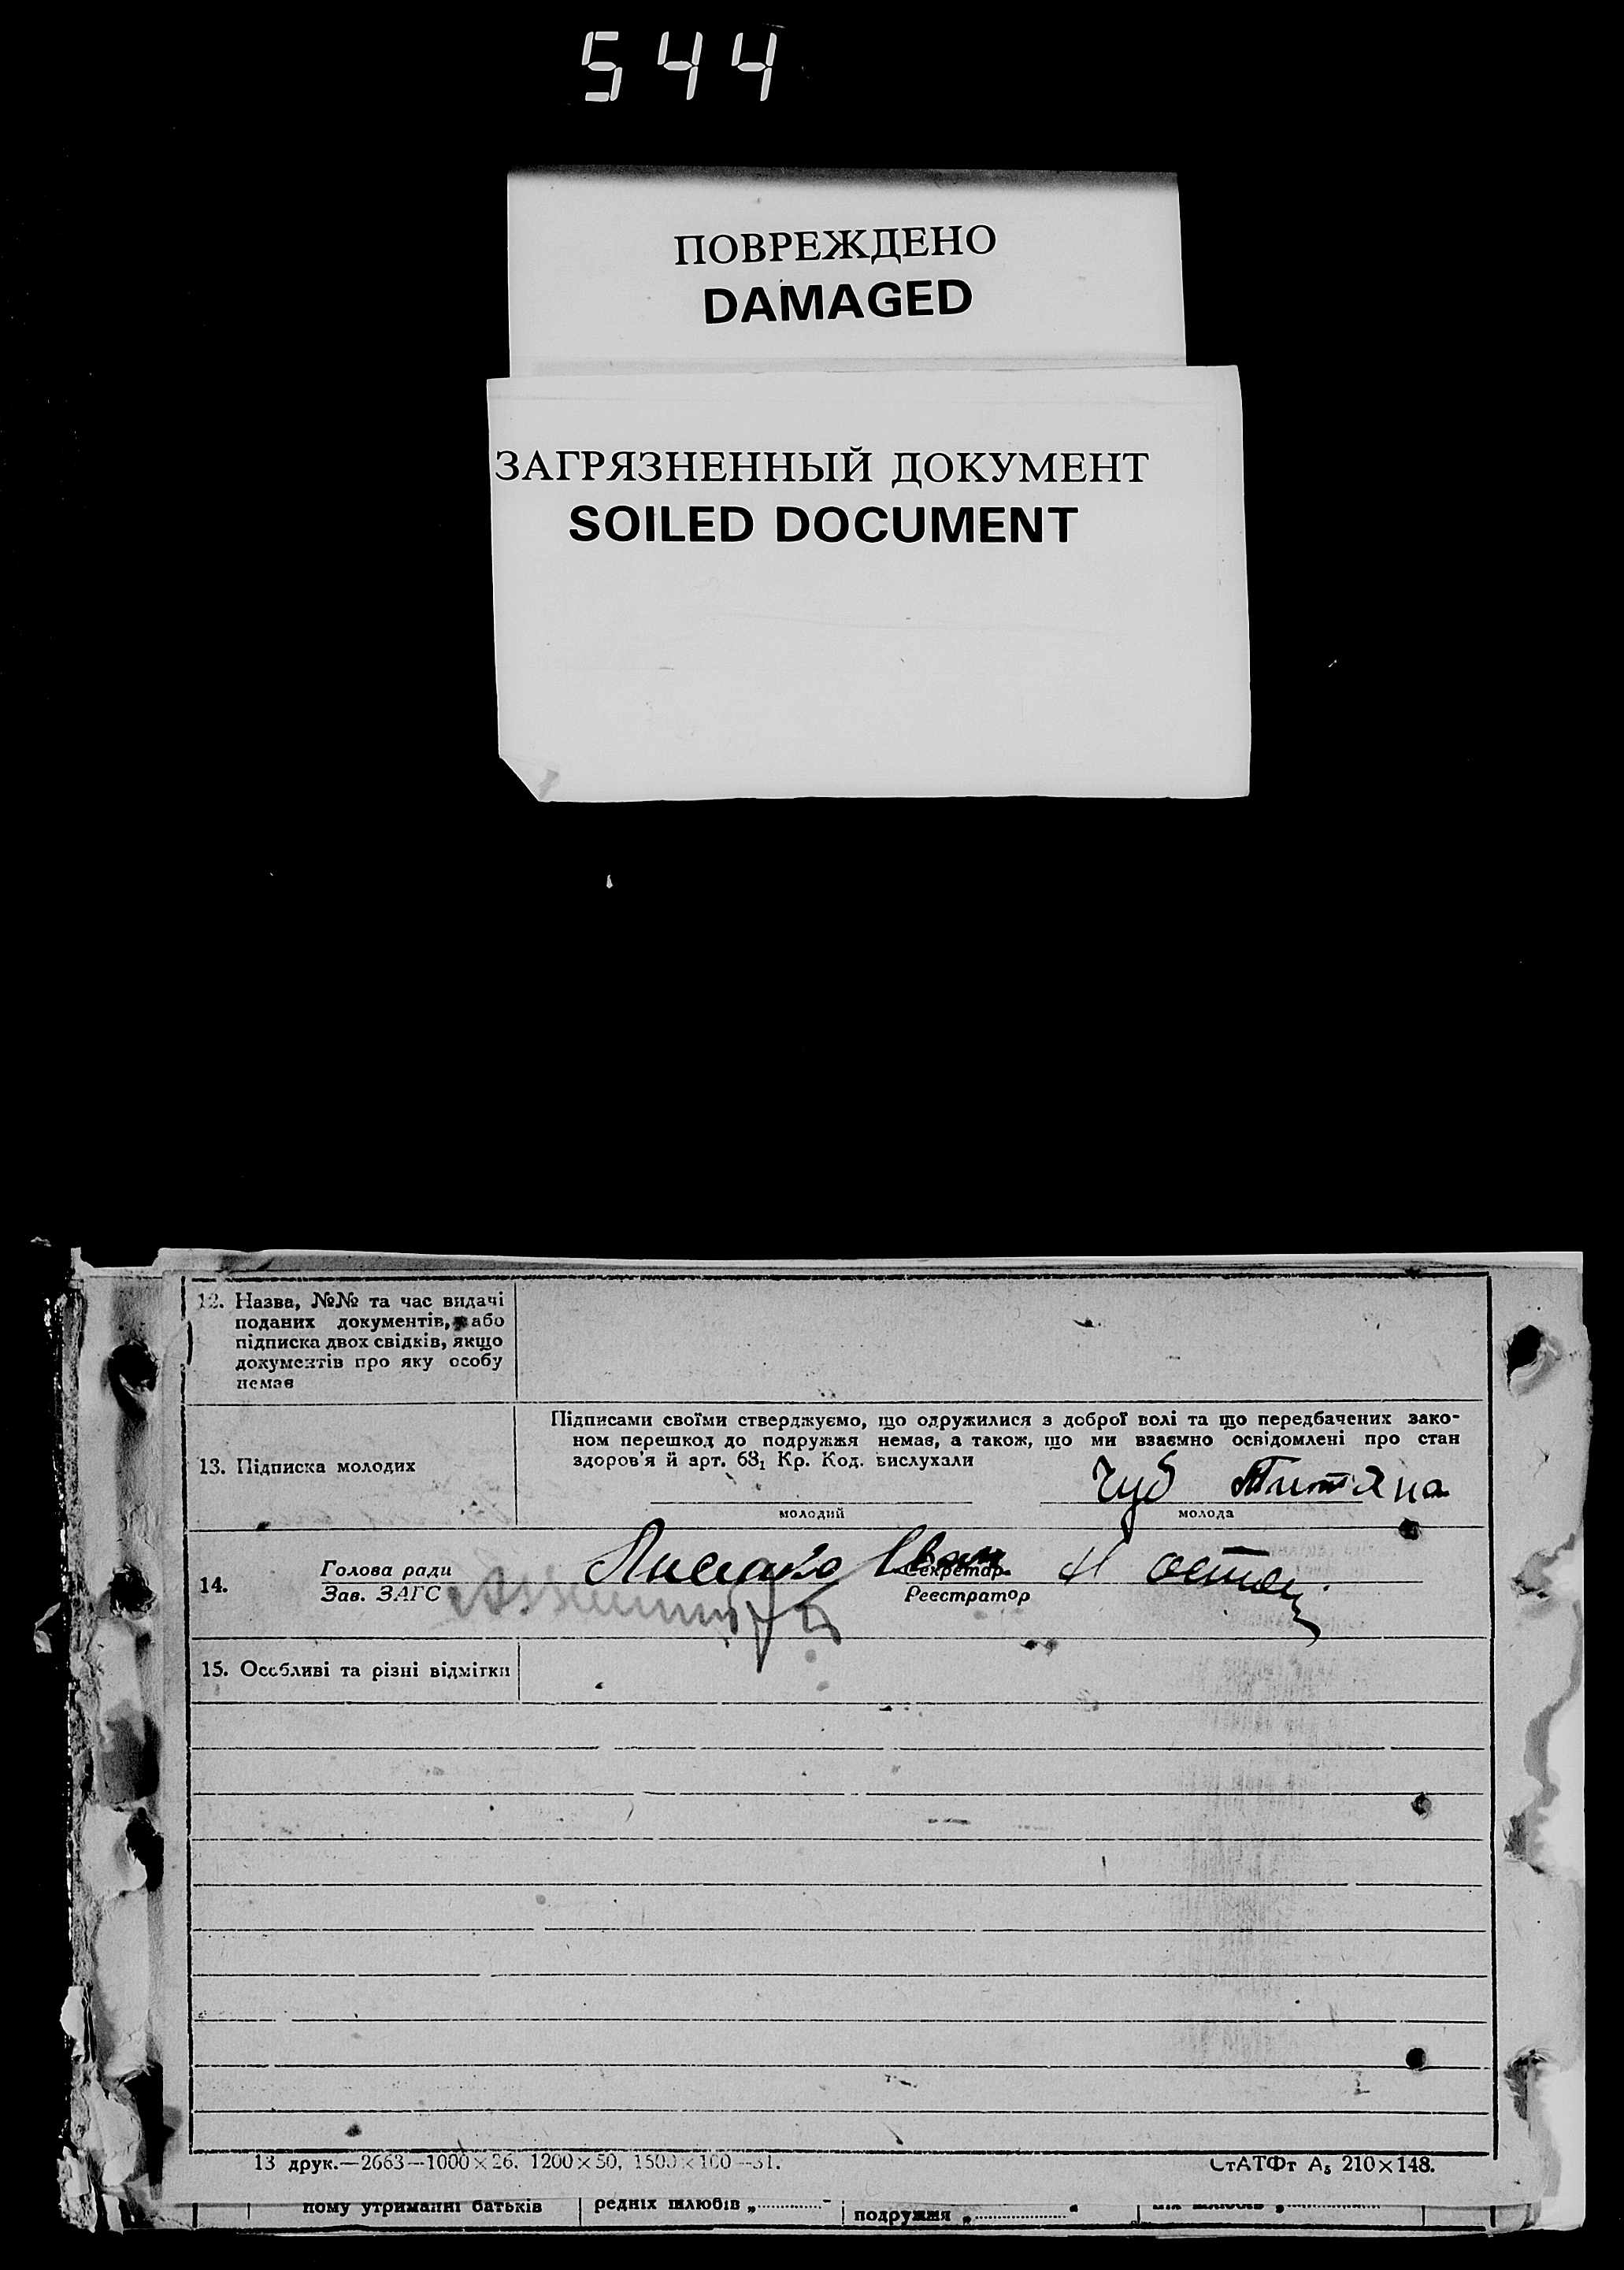 544
ПОВРЕЖДЕНО
DAMAGED
ЗАГРЯЗНЕННЫЙ ДОКУМЕНТ
SOILED DOCUMENT
12. Назва, №№ та час видачі
поданих документів, або
підписка двох свідків, якщо
документів про яку особу
немає
Підписами своїми стверджуємо, що одружилися з доброї волі та що передбачених зако-
ном перешкод до подружжя немає, а також, що ми взаємно освідомлені про стан
здоров'я й арт. 68₁ Кр. Код. вислухали
13. Підписка молодих
Чуб Титяна
молодий
молода
Іван
14.
Голова ради
Секретар
Зав. ЗАГС
Реєстратор
15. Особливі та різні відмітки
13 друк.—2663—1000×26. 1200×50, 1500×100—31.
СтАТФт А₅ 210×148.
ному утриманні батьків
редніх шлюбів „
подружжя „